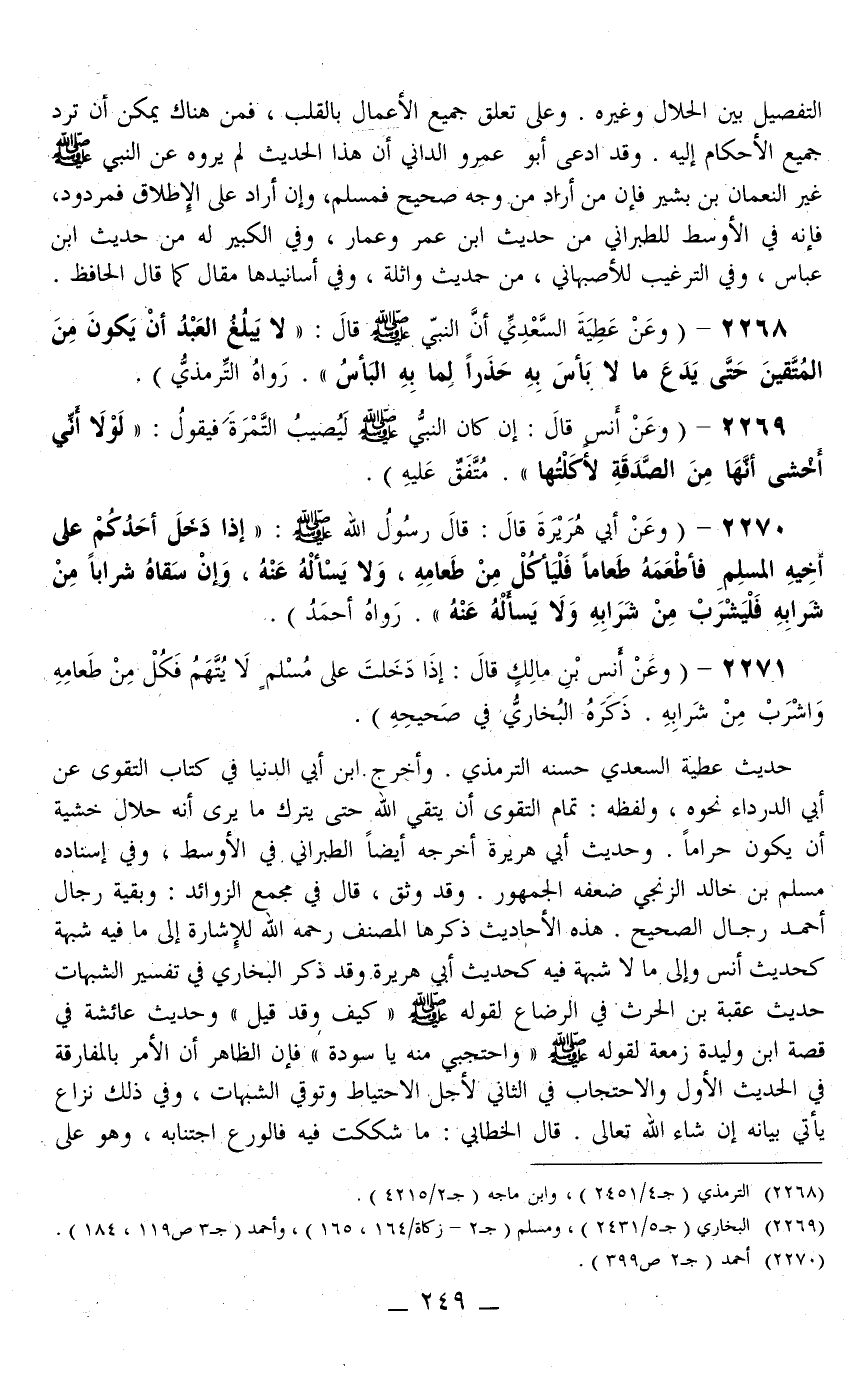 التفصيل بين الحلال وغيره . وعلى تعلق جميع الأعمال بالقلب ، فمن هناك يمكن أن ترد
جميع الأحكام إليه . وقد ادعى أبو عمرو الداني أن هذا الحديث لم يروه عن النبي ﷺ
غير النعمان بن بشير فإن من أراد من وجه صحيح فمسلم، وإن أراد على الإطلاق فمردود،
فإنه في الأوسط للطبراني من حديث ابن عمر وعمار ، وفي الكبير له من حديث ابن
عباس ، وفي الترغيب للأصبهاني ، من حمديث واثلة ، وفي أسانيدها مقال كما قال الحافظ .
٢٢٦٨ – ( وعَنْ عَطِيَةَ السَّعْدِيِّ أنَّ النبيّ ﷺ قالَ : « لا يَبلُغُ العَبْدُ أنْ يَكونَ مِنَ
المُتَّقينَ حَتَّى يَدَعَ ما لا بَأسَ بِهِ حَذَراً لِما بِهِ البَأسُ » . رَواهُ التِّرمذيُّ ) .
٢٢٦٩ – ( وعَنْ أنَسٍ قالَ : إن كان النبيُّ ﷺ لَيُصيبُ التَّمْرَةَ فيقولُ : « لَوْلَا أَنِّي
أَخْشى أنَّهَا مِنَ الصَّدَقَةِ لأَكَلْتُها » . مُتَّفَقٌ عَليهِ ) .
٢٢٧٠ – ( وعَنْ أبي هُرَيْرَةَ قالَ : قالَ رسُولُ الله ﷺ : « إذا دَخَلَ أحَدُكُمْ على
أخِيهِ المسلِمِ فأطْعَمَهُ طَعاماً فَلْيَأكُلْ مِنْ طَعامِهِ ، وَلا يَسْألْهُ عَنْهُ ، وَإنْ سَقاهُ شراباً مِنْ
شَرابِهِ فَلْيَشْرَبْ مِنْ شَرَابِهِ وَلَا يَسألْهُ عَنْهُ » . رَواهُ أحمَدُ ) .
٢٢٧١ – ( وعَنْ أَنس بْنِ مالِكٍ قالَ : إذَا دَخَلتَ على مُسْلمٍ لَا يُتَّهَمُ فَكُلْ مِنْ طَعامِهِ
وَاشْرَبْ مِنْ شَرابِهِ . ذَكَرَهُ البُخاريُّ في صَحيحِهِ ) .
حديث عطية السعدي حسنه الترمذي . وأخرج ابن أبي الدنيا في كتاب التقوى عن
أبي الدرداء نحوه ، ولفظه : تمام التقوى أن يتقي الله حتى يترك ما يرى أنه حلال خشية
أن يكون حراماً . وحديث أبي هريرة أخرجه أيضاً الطبراني في الأوسط ، وفي إسناده
مسلم بن خالد الزنجي ضعفه الجمهور . وقد وثق ، قال في مجمع الزوائد : وبقية رجال
أحمد رجال الصحيح . هذه الأحاديث ذكرها المصنف رحمه الله للإشارة إلى ما فيه شبهة
كحديث أنس وإلى ما لا شبهة فيه كحديث أبي هريرة وقد ذكر البخاري في تفسير الشبهات
حديث عقبة بن الحرث في الرضاع لقوله ﷺ « كيف وقد قيل » وحديث عائشة في
قصة ابن وليدة زمعة لقوله ﷺ « واحتجبي منه يا سودة » فإن الظاهر أن الأمر بالمفارقة
في الحديث الأول والاحتجاب في الثاني لأجل الاحتياط وتوقي الشبهات ، وفي ذلك نزاع
يأتي بيانه إن شاء الله تعالى . قال الخطابي : ما شككت فيه فالورع اجتنابه ، وهو على
(٢٢٦٨) الترمذي ( جـ٢٤٥١/٤ ) ، وابن ماجه ( جـ٤٢١٥/٢ ) .
(٢٢٦٩) البخاري ( جـ٢٤٣١/٥ ) ، ومسلم ( جـ٢ – زكاة/١٦٤ ، ١٦٥ ) ، وأحمد ( جـ٣ ص١١٩ ، ١٨٤ ) .
(٢٢٧٠) أحمد ( جـ٢ ص٣٩٩ ) .
– ٢٤٩ –